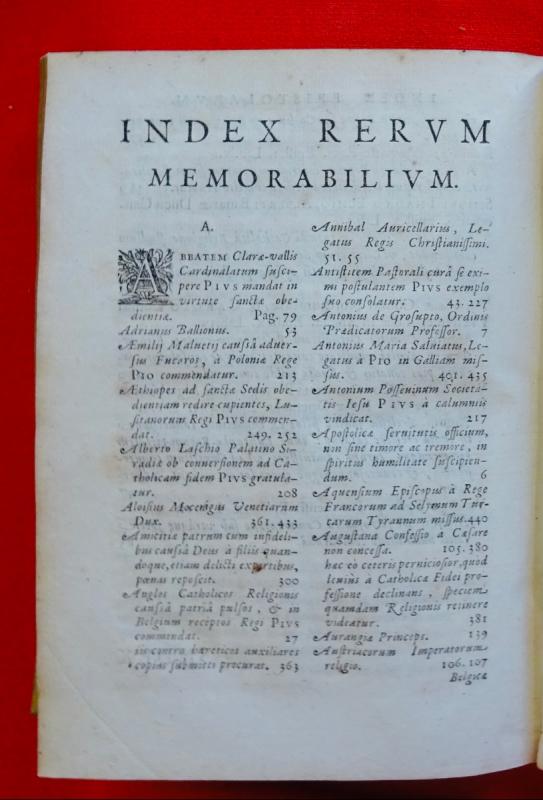 INDEX RERVM
MEMORABILIVM.
A.
ABBATEM Claræ-vallis
Cardinalatum susci-
pere PIVS mandat in
virtute sanctæ obe-
dientiæ. Pag. 79
Adrianus Ballionus. 53
Æmilij Maluetij causiā aduer-
sus Fucaros, à Poloniæ Rege
PIO commendatur. 213
Æthiopes ad sanctæ Sedis obe-
dientiam redire cupientes, Lu-
sitanorum Regi PIVS commen-
dat. 249. 252
Alberto Laschio Palatino Si-
radiæ ob conuersionem ad Ca-
tholicam fidem PIVS gratula-
tur. 208
Aloisius Mocenigus Venetiarum
Dux. 361.433
Amicitiæ patrum cum infideli-
bus causiā Deus à filiis quan-
doque, etiam delicti expertibus,
pœnas reposcit. 300
Anglos Catholicos Religionis
causiā patriā pulsos, & in
Belgium receptos Regi PIVS
commendat. 27
iis contra hæreticos auxiliares
copias submitti procurat. 363
Annibal Auricellarius, Le-
gatus Regis Christianissimi.
51. 55
Antistitem Pastorali curā se exi-
mi postulantem PIVS exemplo
suo consolatur. 43. 227
Antonius de Grosupto, Ordinis
Prædicatorum Professor. 7
Antonius Maria Saluiatus, Le-
gatus à PIO in Galliam mis-
sus. 401. 435
Antonium Posseuinum Societa-
tis Iesu PIVS à calumniis
vindicat. 217
Apostolicæ seruitutis officium,
non sine timore ac tremore, in
spiritus humilitate suscipien-
dum. 6
Aquensium Episcopus à Rege
Francorum ad Selymum Tur-
carum Tyrannum missus. 440
Augustana Confessio à Cæsare
non concessa. 105. 380
hæc eò ceteris perniciosior, quod
leniùs à Catholicæ Fidei pro-
fessione declinans, speciem
quamdam Religionis retinere
videatur. 381
Aurangiæ Princeps. 139
Austriacorum Imperatorum
religio. 106. 107
Belgicæ